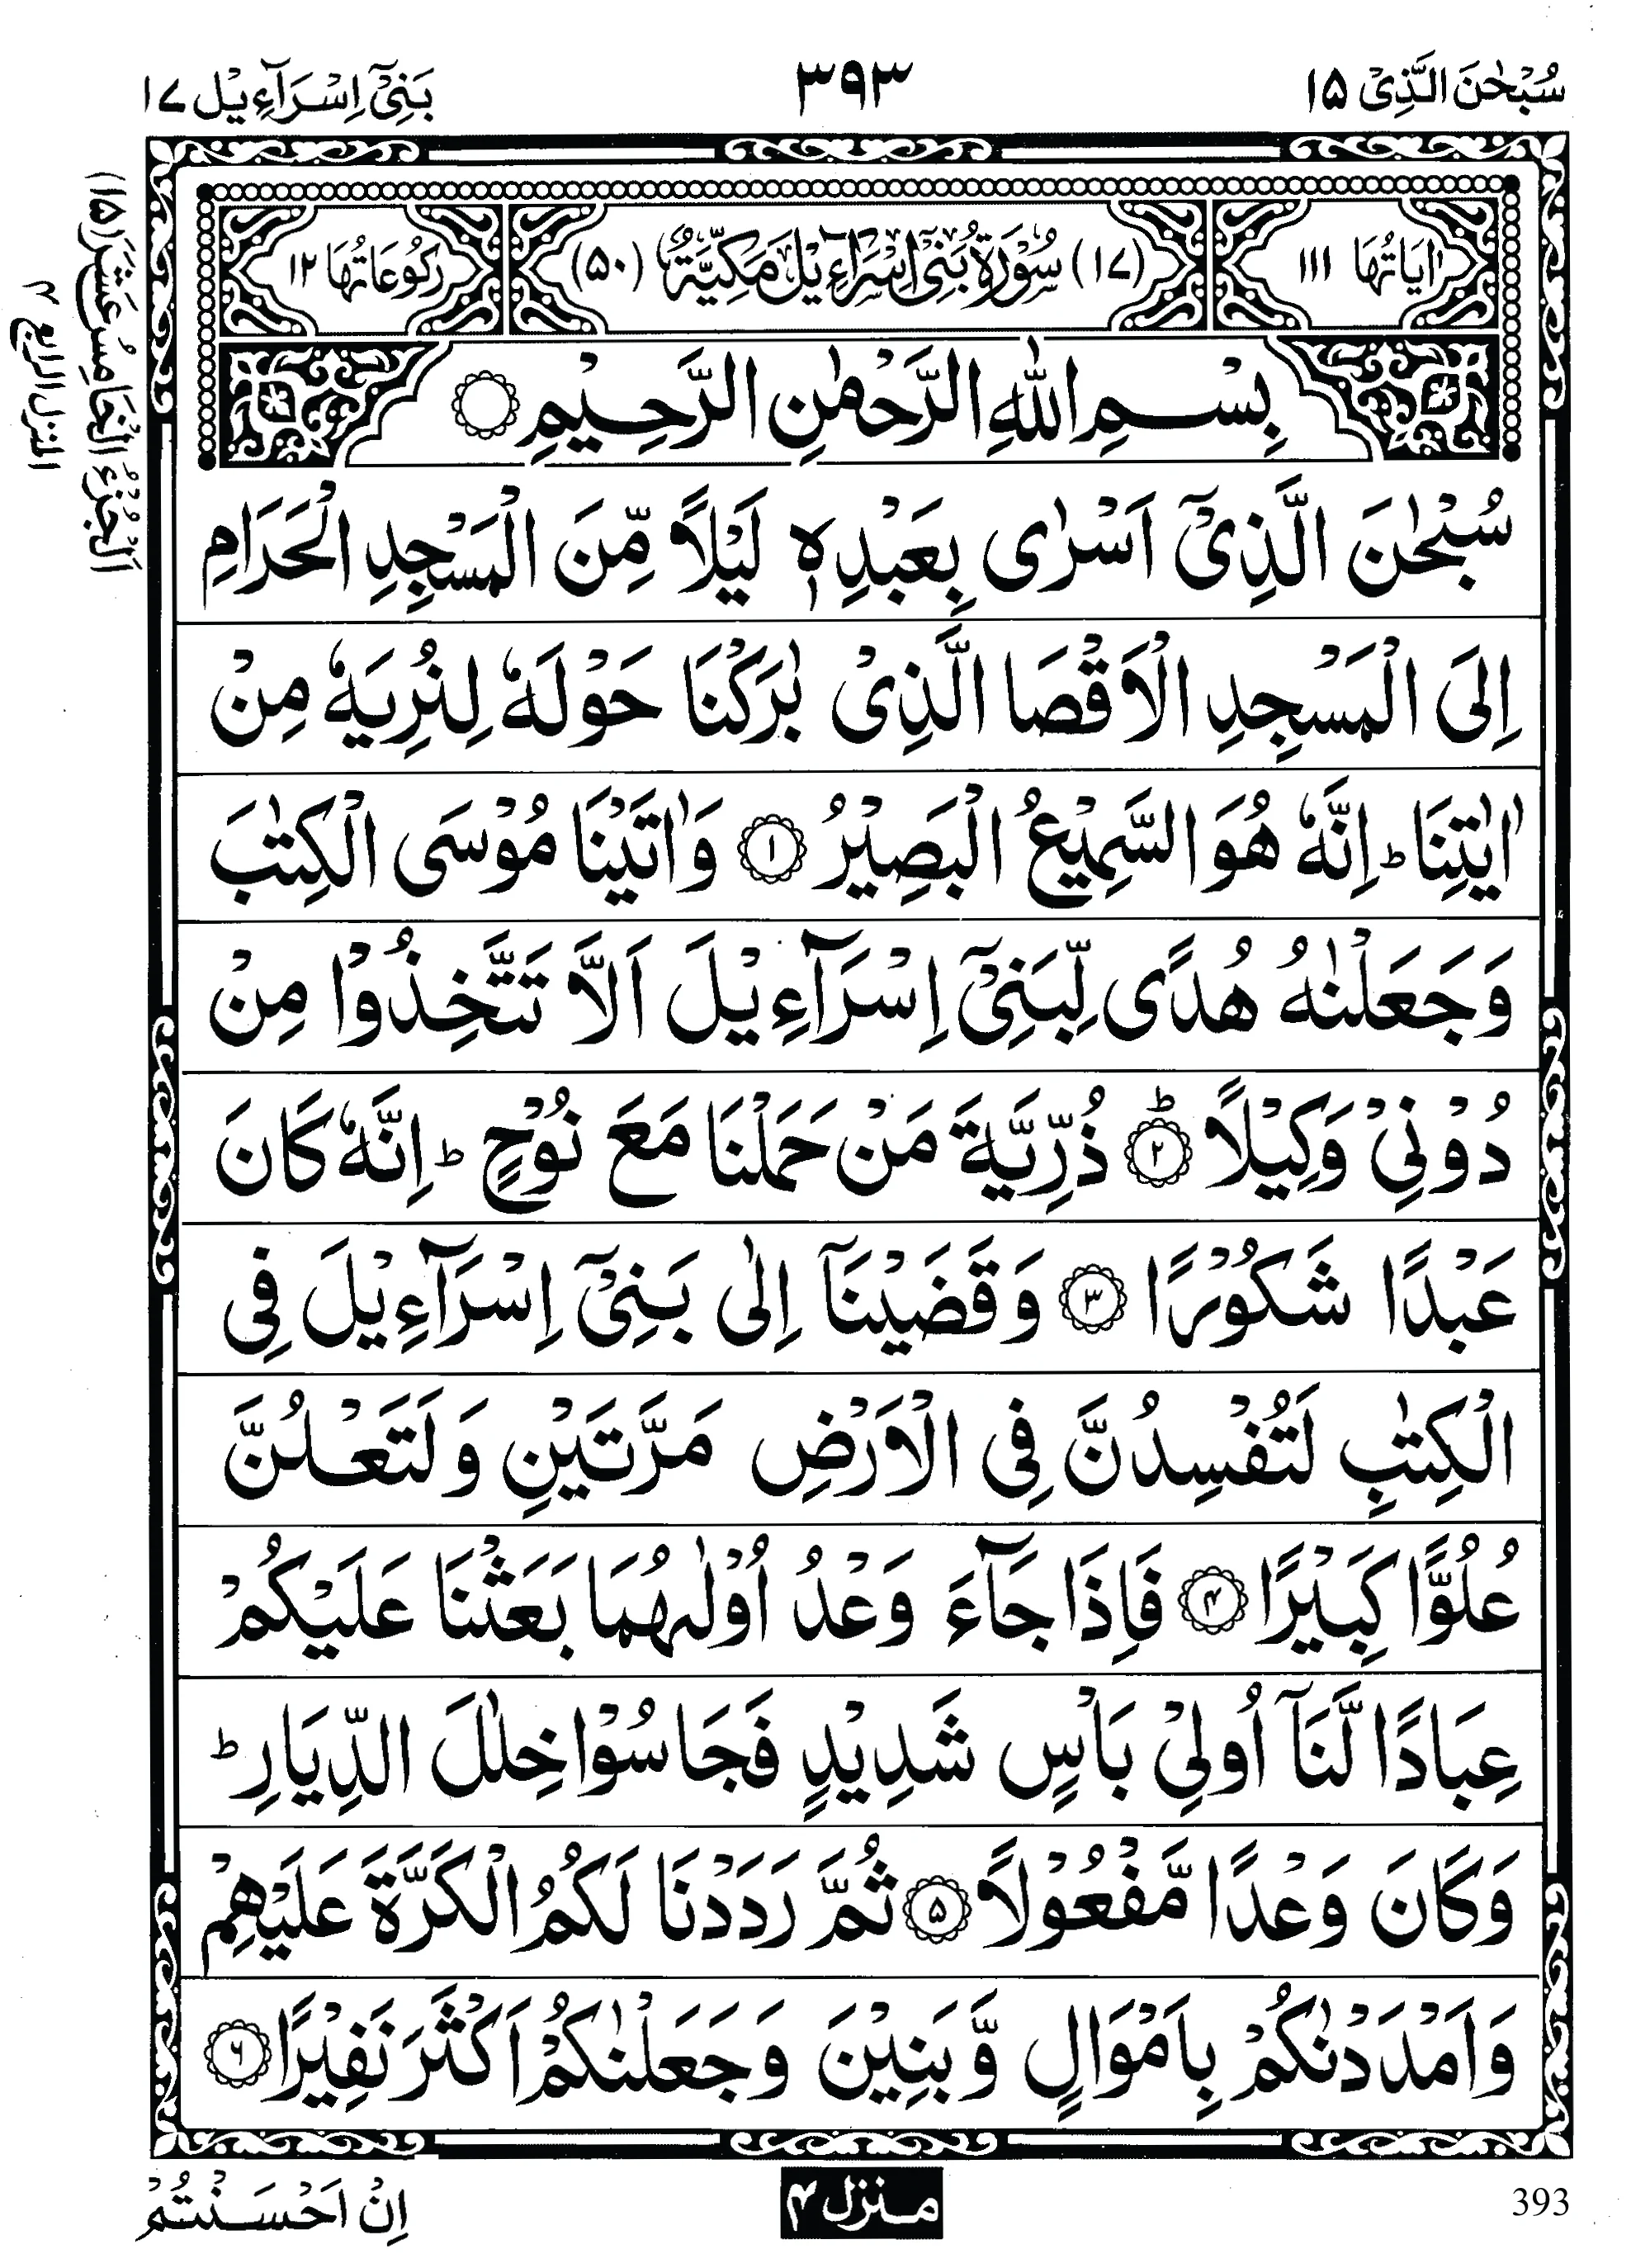 سُبْحٰنَ الَّذِیْۤ ۱۵
۳۹۳
بَنِیْۤ اِسْرَآءِیْل ۱۷
اٰیَاتُهَا ۱۱۱
(۱۷) سُوْرَةُ بَنِیْۤ اِسْرَآءِیْلَ مَكِّیَّةٌ (۵۰)
رُكُوْعَاتُهَا ۱۲
اَلْجُزْءُ الْخَامِسُ عَشَرَ (۱۵)
المنزل الرابع ۴
بِسْمِ اللّٰهِ الرَّحْمٰنِ الرَّحِیْمِ
سُبْحٰنَ الَّذِیْۤ اَسْرٰی بِعَبْدِهٖ لَیْلًا مِّنَ الْمَسْجِدِ الْحَرَامِ
اِلَی الْمَسْجِدِ الْاَقْصَا الَّذِیْ بٰرَكْنَا حَوْلَهٗ لِنُرِیَهٗ مِنْ
اٰیٰتِنَا ؕ اِنَّهٗ هُوَ السَّمِیْعُ الْبَصِیْرُ ۱ وَاٰتَیْنَا مُوْسَی الْكِتٰبَ
وَجَعَلْنٰهُ هُدًی لِّبَنِیْۤ اِسْرَآءِیْلَ اَلَّا تَتَّخِذُوْا مِنْ
دُوْنِیْ وَكِیْلًا ؕ ۲ ذُرِّیَّةَ مَنْ حَمَلْنَا مَعَ نُوْحٍ ؕ اِنَّهٗ كَانَ
عَبْدًا شَكُوْرًا ۳ وَقَضَیْنَاۤ اِلٰی بَنِیْۤ اِسْرَآءِیْلَ فِی
الْكِتٰبِ لَتُفْسِدُنَّ فِی الْاَرْضِ مَرَّتَیْنِ وَلَتَعْلُنَّ
عُلُوًّا كَبِیْرًا ۴ فَاِذَا جَآءَ وَعْدُ اُوْلٰىهُمَا بَعَثْنَا عَلَیْكُمْ
عِبَادًا لَّنَاۤ اُولِیْ بَاْسٍ شَدِیْدٍ فَجَاسُوْا خِلٰلَ الدِّیَارِ ؕ
وَكَانَ وَعْدًا مَّفْعُوْلًا ۵ ثُمَّ رَدَدْنَا لَكُمُ الْكَرَّةَ عَلَیْهِمْ
وَاَمْدَدْنٰكُمْ بِاَمْوَالٍ وَّبَنِیْنَ وَجَعَلْنٰكُمْ اَكْثَرَ نَفِیْرًا ۶
اِنْ اَحْسَنْتُمْ
مـنزل ۴
393